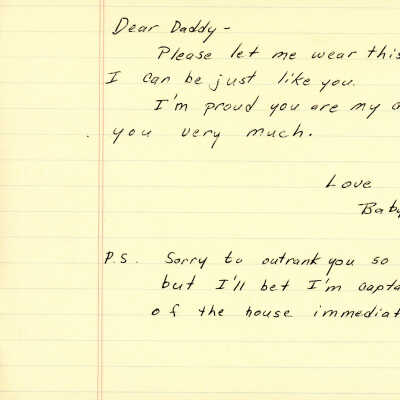 Dear Daddy -
Please let me wear this
I can be just like you.
I'm proud you are my
you very much.
Love
P.S. Sorry to outrank you so
but I'll bet I'm
of the house